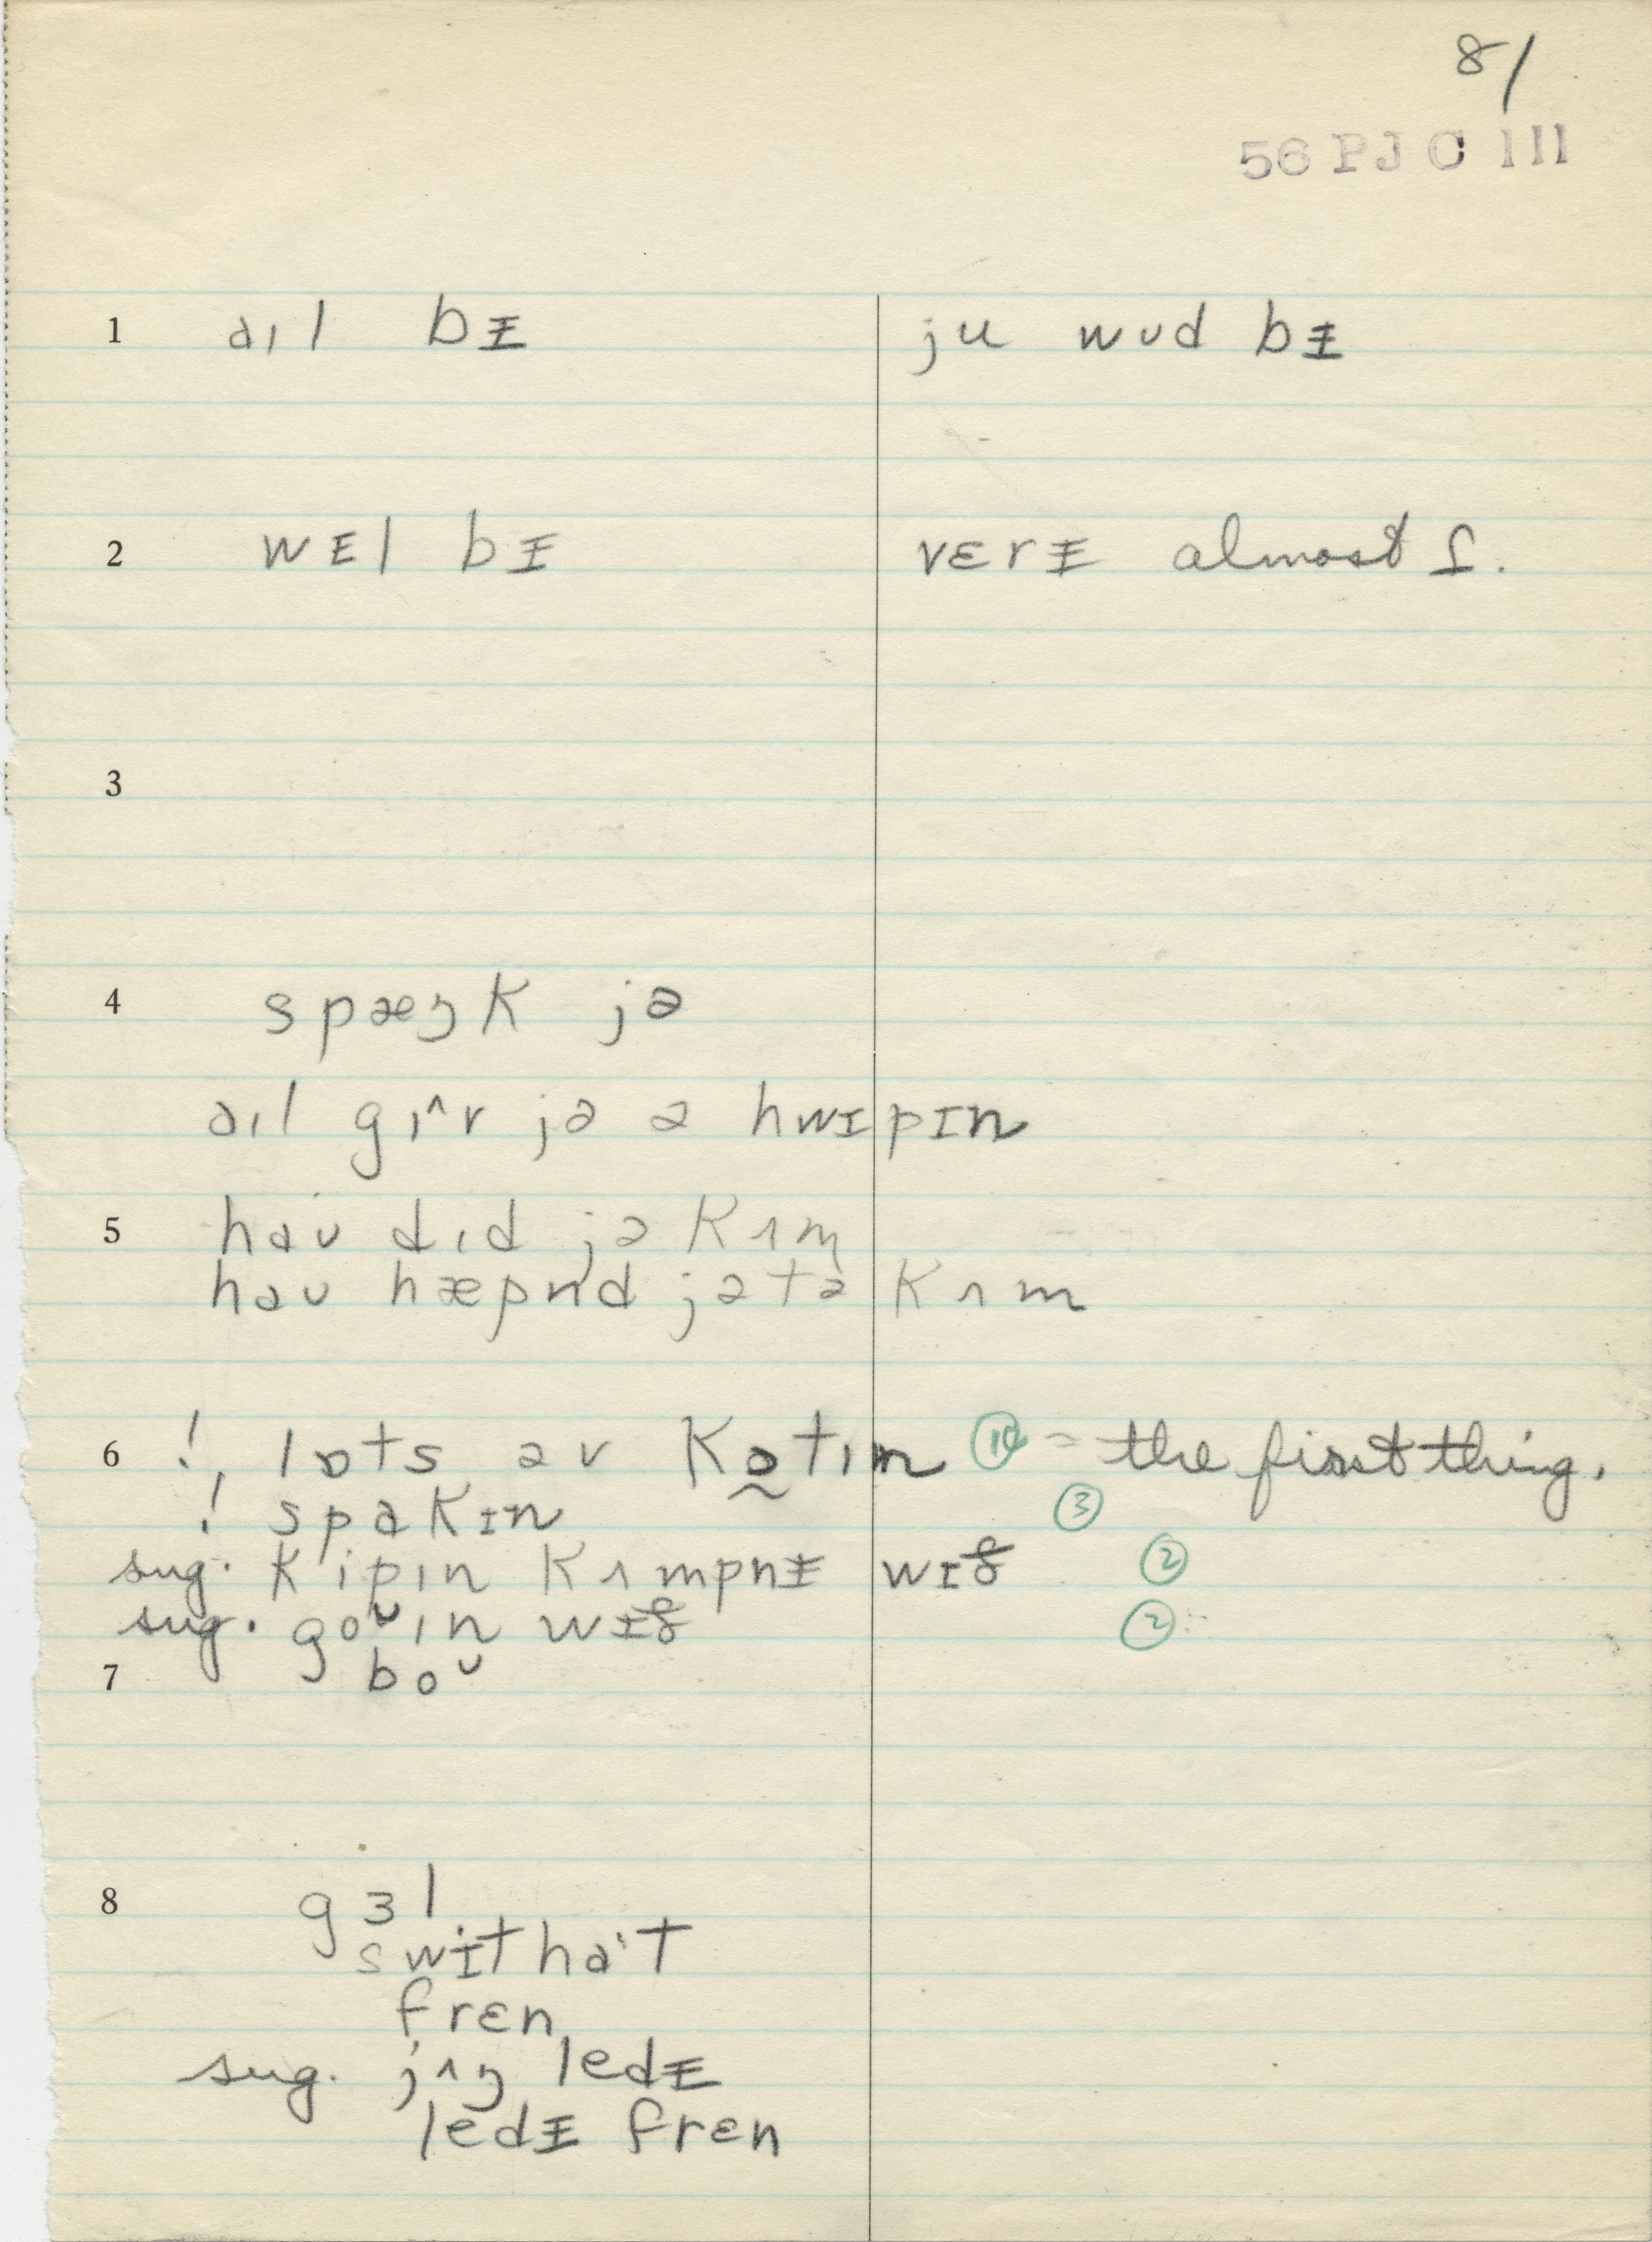 81
56 PJC 111
1 aɪl bɪ̵ ju wʊd bɪ̵
2 wɛl bɪ̵ vɛrɪ̵ almost ɪ.
3
4 spæŋk jə
aɪl gɪ^v jə ə hwɪpɪn
5 haʊ dɪd jə kʌm
haʊ hæpnd jə tə kʌm
6 !, lɒts əv kɔ̰tɪn ⑩ = the first thing.
! spakɪn ③
sug. kipɪn kʌmpnɪ̵ wɪð ②
sug. goᴜɪn wɪð ②
7 boᴜ
8 gɜl
swithaˑt
frɛn
sug. jʌŋ ledɪ̵
ledɪ̵ frɛn